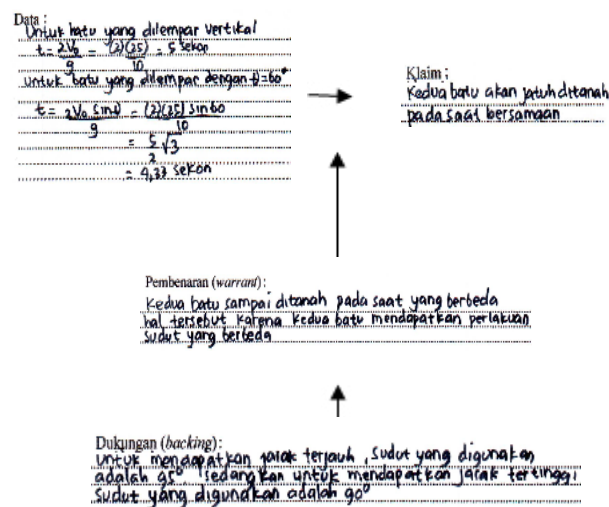 Data :
Untuk batu yang dilempar vertikal
t = 2V₀/g = (2)(25)/10 = 5 sekon
Untuk batu yang dilempar dengan θ=60°
t = 2V₀ sinθ/g = (2)(25) sin60/10
= 5/2 √3
= 4,33 sekon
Klaim :
Kedua batu akan jatuh ditanah
pada saat bersamaan
Pembenaran (warrant) :
Kedua batu sampai ditanah pada saat yang berbeda
hal tersebut karena kedua batu mendapatkan perlakuan
sudut yang berbeda
Dukungan (backing) :
untuk mendapatkan jarak terjauh, sudut yang digunakan
adalah 45° sedangkan untuk mendapatkan jarak tertinggi
sudut yang digunakan adalah 90°